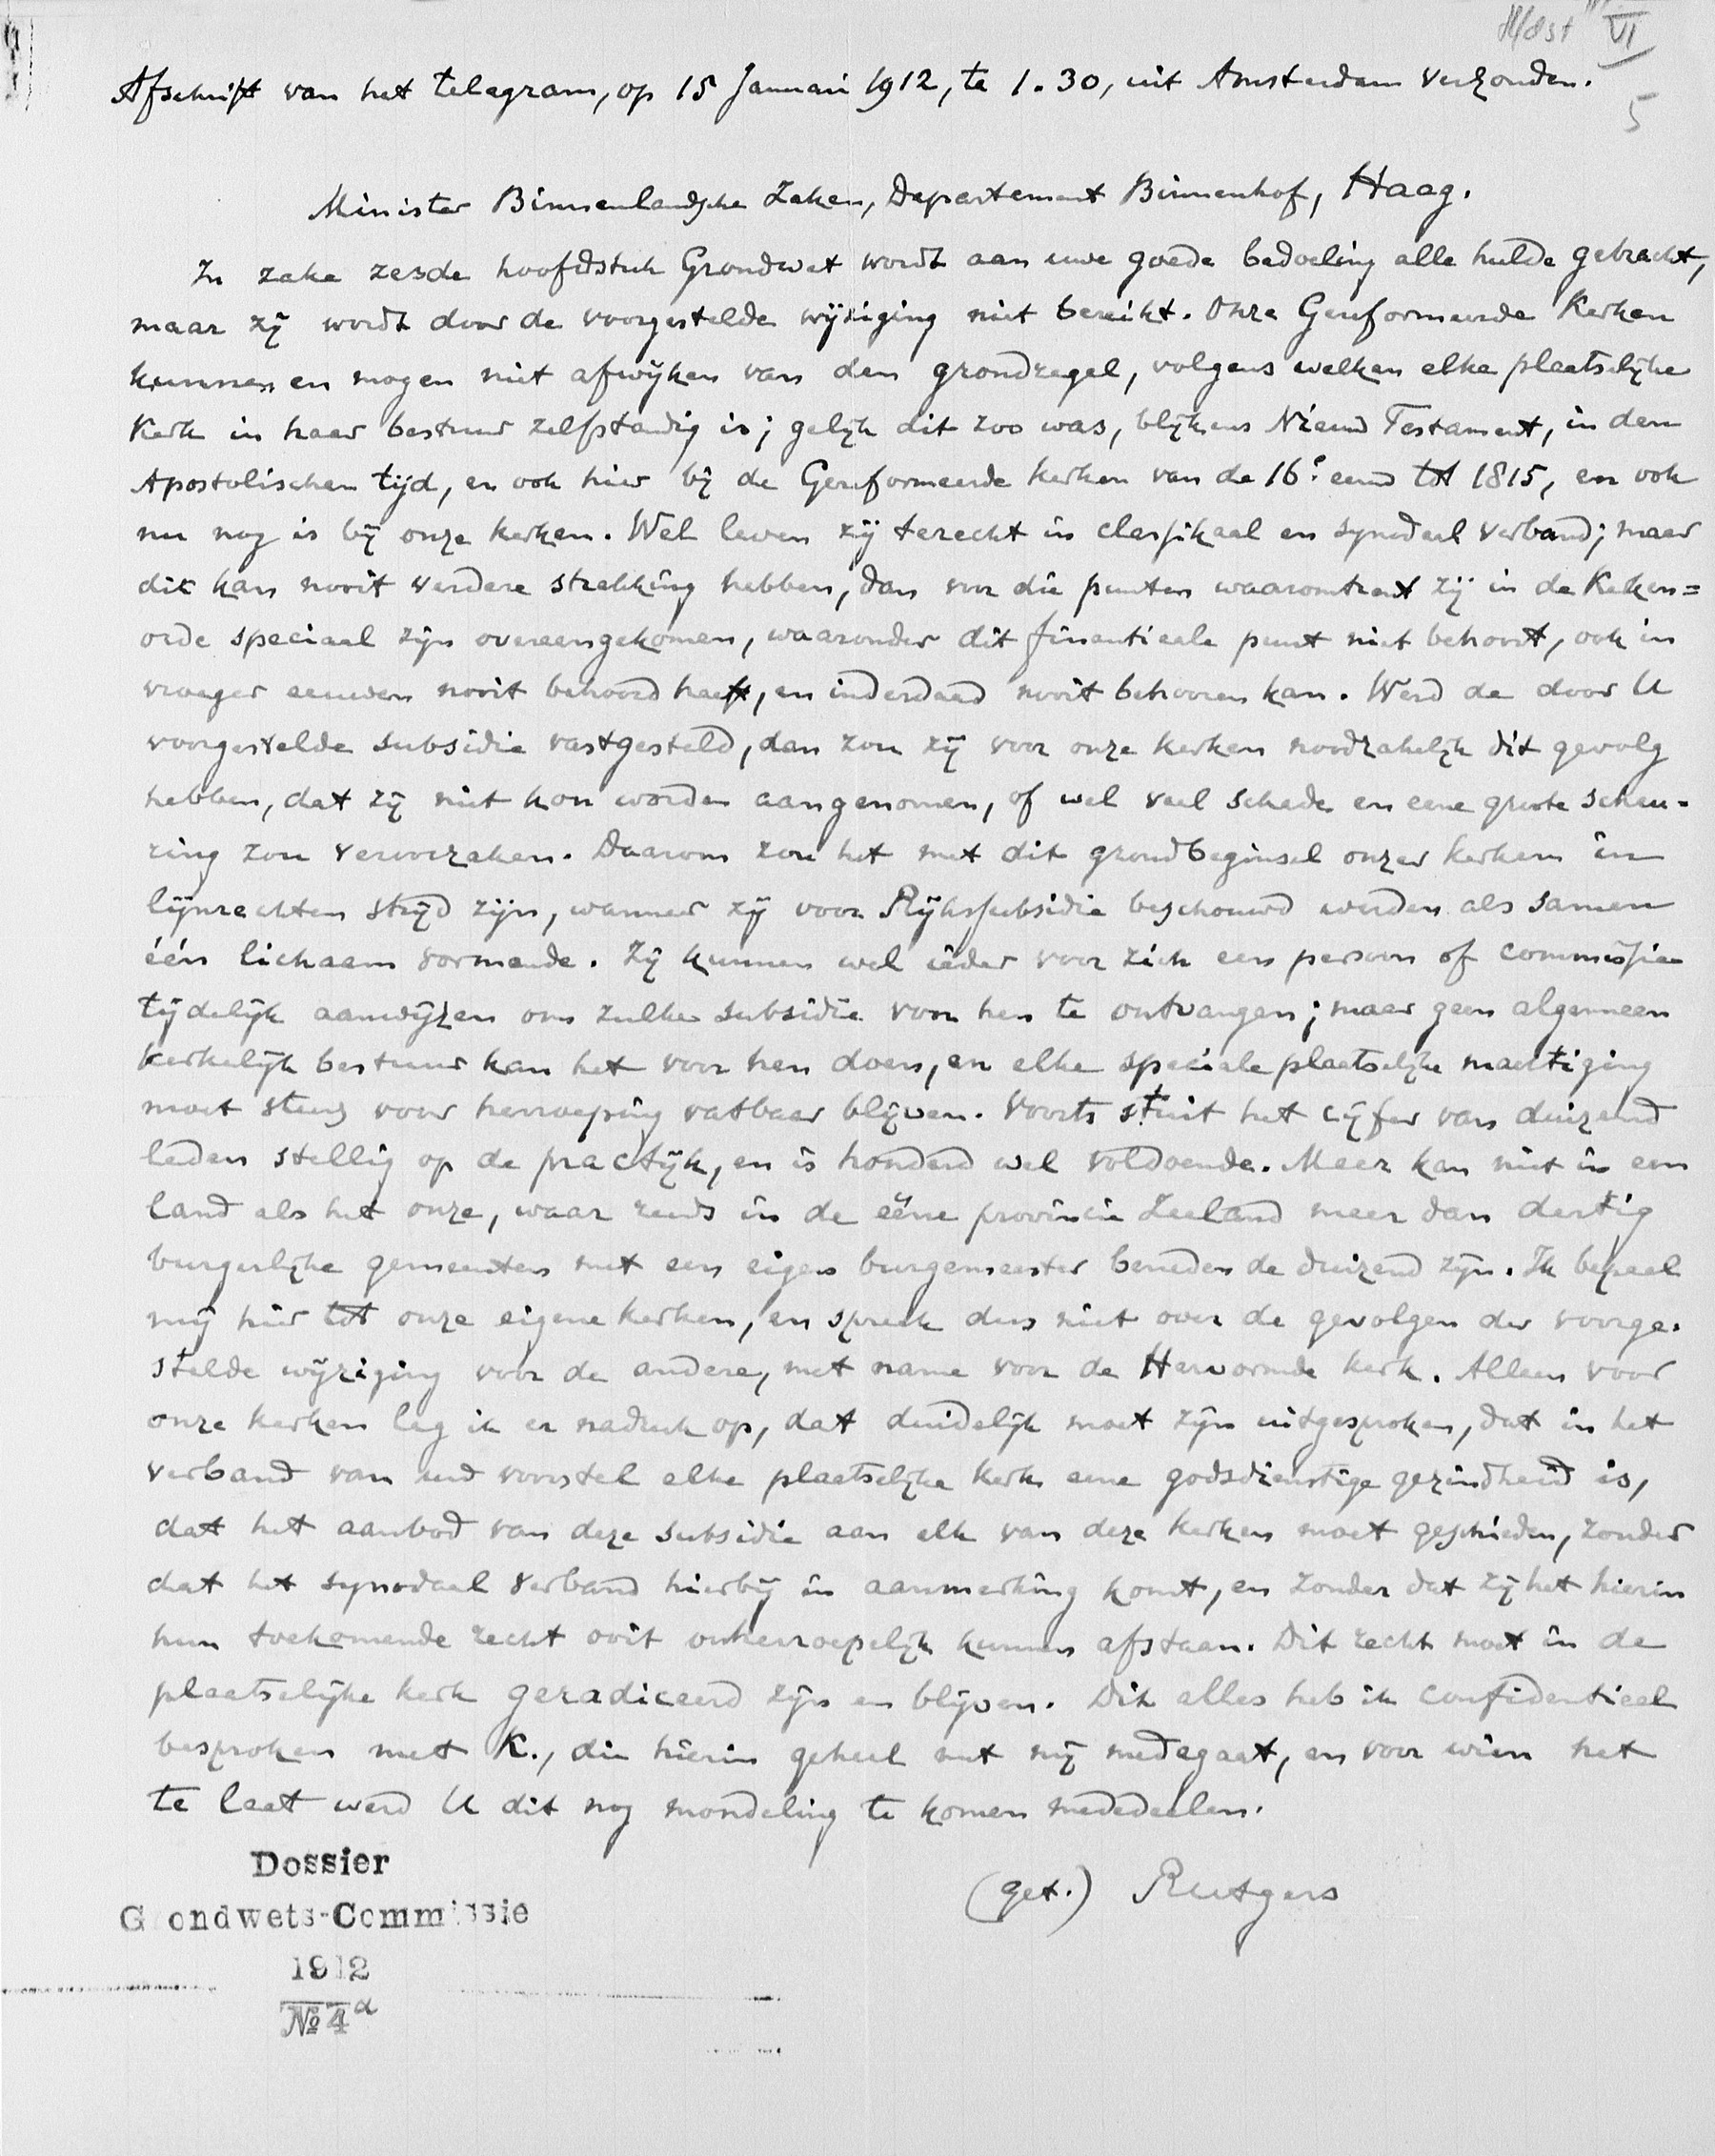 Hfdst VI
5
Afschrift van het telegram, op 15 Januari 1912, te 1.30, uit Amsterdam verzonden.
Minister Binnenlandsche Zaken, Departement Binnenhof, Haag.
In zake zesde hoofdstuk Grondwet wordt aan uwe goede bedoeling alle hulde gebracht,
maar zij wordt door de voorgestelde wijziging niet bereikt. Onze Gereformeerde Kerken
kunnen en mogen niet afwijken van den grondregel, volgens welken elke plaatselijke
Kerk in haar bestuur zelfstandig is; gelijk dit zoo was, blijkens Nieuw Testament, in den
Apostolischen tijd, en ook hier bij de Gereformeerde kerken van de 16e eeuw tot 1815, en ook
nu nog is bij onze kerken. Wel leven zij terecht in classikaal en synodaal verband; maar
dit kan nooit verdere strekking hebben, dan voor die punten waaromtrent zij in de Kerken=
orde speciaal zijn overeengekomen, waaronder dit finantieele punt niet behoort, ook in
vroeger eeuwen nooit behoord heeft, en inderdaad nooit behooren kan. Werd de door U
voorgestelde subsidie vastgesteld, dan zou zij voor onze kerken noodzakelijk dit gevolg
hebben, dat zij niet kon worden aangenomen, of wel veel schade en eene groote scheu-
ring zou veroorzaken. Daarom zou het met dit grondbeginsel onzer kerken in
lijnrechten strijd zijn, wanneer zij voor Rijkssubsidie beschouwd werden als samen
één lichaam vormende. Zij kunnen wel ieder voor zich een persoon of commissie
tijdelijk aanwijzen om zulke subsidie voor hen te ontvangen; maar geen algemeen
kerkelijk bestuur kan het voor hen doen, en elke speciale plaatselijke machtiging
moet steeds voor herroeping vatbaar blijven. Voorts stuit het cijfer van duizend
leden stellig op de practijk, en is honderd wel voldoende. Meer kan niet in een
land als het onze, waar reeds in de ééne provincie Zeeland meer dan dertig
burgerlijke gemeenten met een eigen burgemeester beneden de duizend zijn. Ik bepaal
mij hier tot onze eigene kerken, en spreek dus niet over de gevolgen der voorge-
stelde wijziging voor de andere, met name voor de Hervormde kerk. Alleen voor
onze kerken leg ik er nadruk op, dat duidelijk moet zijn uitgesproken, dat in het
verband van uw voorstel elke plaatselijke kerk eene godsdienstige gezindheid is,
dat het aanbod van deze subsidie aan elk van deze kerken moet geschieden, zonder
dat het synodaal verband hierbij in aanmerking komt, en zonder dat zij het hierin
hun toekomende recht ooit onherroepelijk kunnen afstaan. Dit recht moet in de
plaatselijke kerk geradiceerd zijn en blijven. Dit alles heb ik confidentieel
besproken met K., die hierin geheel met mij medegaat, en voor wien het
te laat werd U dit nog mondeling te komen mededeelen.
(get.) Rutgers
Dossier
Grondwets-Commissie
1912
No 4a